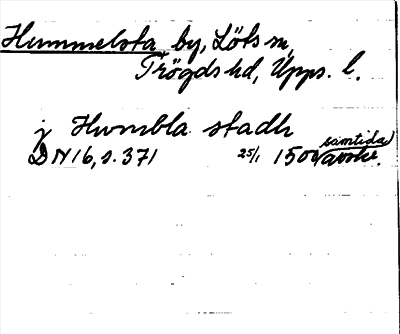 Hummelsta by, Löts sn,
Trögds hd, Upps. l.
j Humbla stadh
DN 16, s. 371 25/1 1500 samtida avskr.